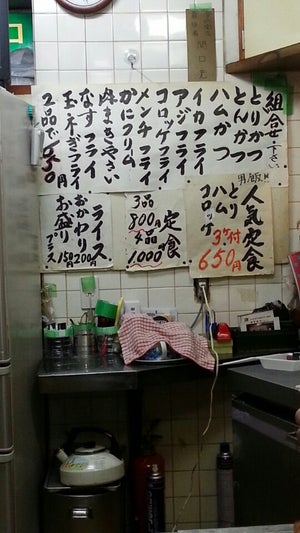 組合せ下さい
とりかつ
とんかつ
ハムかつ
イカフライ
アジフライ
コロッケフライ
メンチフライ
かにクリーム
肉まきやさい
なすフライ
玉ネギフライ
2品で 円
男飯!!
人気定食
とり
ハム
コロッケ
3ケ付
650円
3品
800円
定食
4品
1,000円
ライス
おかわり
200円
お盛り
プラス
150円